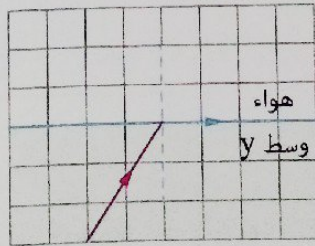 هواء
وسط y